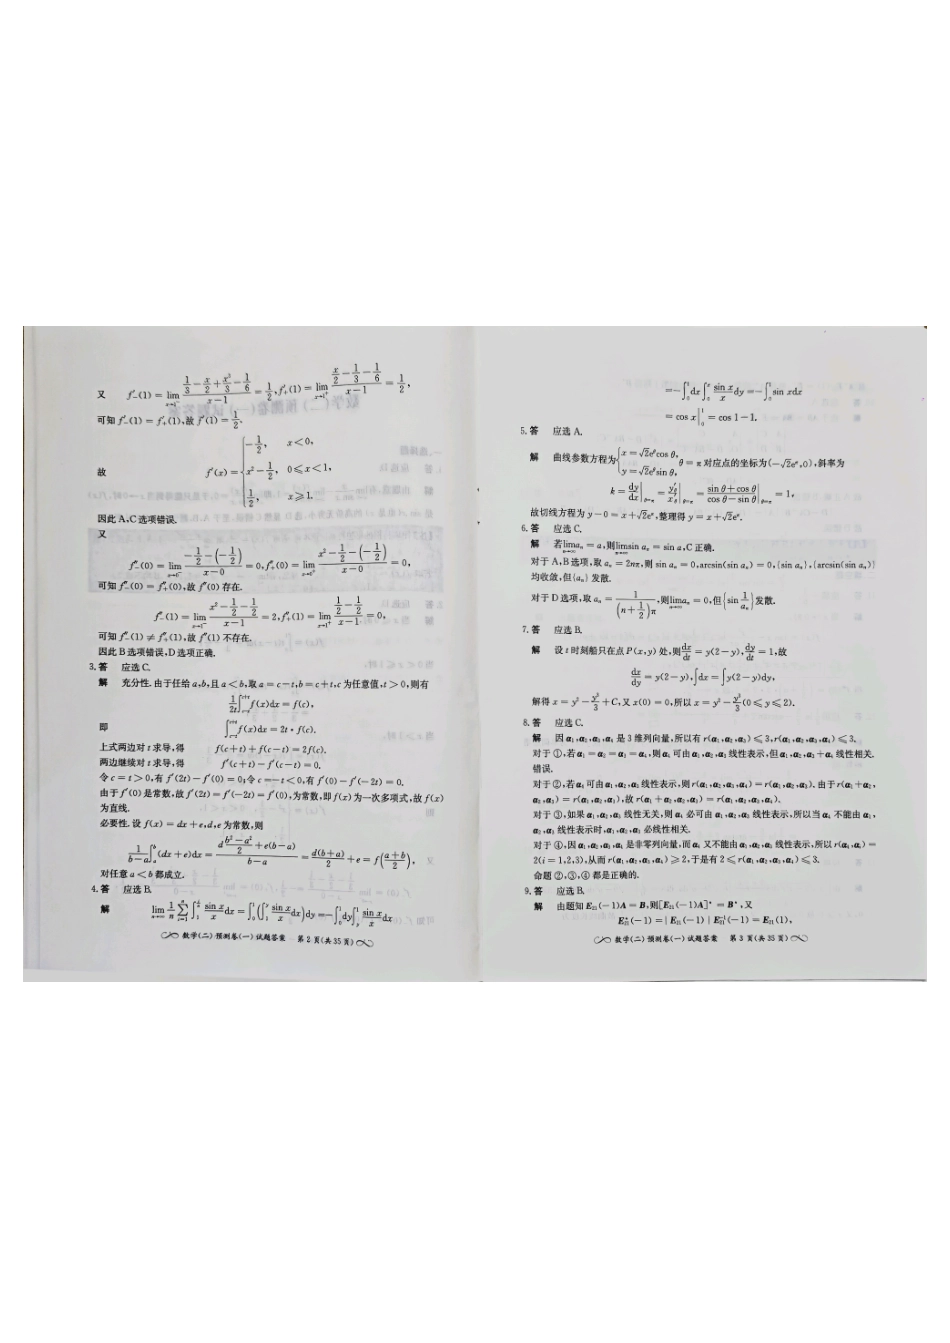 又 f″₋(1) = lim_{x→1⁻} (1/3 − x/2 + x³/3 − 1/6)/(x−1) = 1/2, f′₊(1) = lim_{x→1⁺} (x/2 − 1/3 − 1/6)/(x−1) = 1/2,
可知 f′₋(1) = f′₊(1), 故 f′(1) = 1/2.
故 f′(x) = { −1/2, x<0,
x² − 1/2, 0⩽x<1,
1/2, x⩾1.
因此 A,C 选项错误.
又
f″₋(0) = lim_{x→0⁻} (−1/2 − (−1/2))/(x−0) = 0, f″₊(0) = lim_{x→0⁺} (x² − 1/2 − (−1/2))/(x−0) = 0,
可知 f″₋(0) = f″₊(0), 故 f″(0) 存在.
f″₋(1) = lim_{x→1⁻} (x² − 1/2 − 1/2)/(x−1) = 2, f″₊(1) = lim_{x→1⁺} (1/2 − 1/2)/(x−1) = 0.
可知 f″₋(1) ≠ f″₊(1), 故 f″(1) 不存在.
因此 B 选项错误,D 选项正确.
3. 答 应选 C.
解 充分性. 由于任给 a,b,且 a<b,取 a=c−t,b=c+t,c 为任意值,t>0,则有
1/(2t) ∫_{c−t}^{c+t} f(x)dx = f(c),
即 ∫_{c−t}^{c+t} f(x)dx = 2t·f(c).
上式两边对 t 求导,得 f(c+t)+f(c−t)=2f(c).
两边继续对 t 求导,得 f′(c+t)−f′(c−t)=0.
令 c=t>0,有 f′(2t)−f′(0)=0;令 c=−t<0,有 f′(0)−f′(−2t)=0.
由于 f′(0) 是常数,故 f′(2t)=f′(−2t)=f′(0),为常数,即 f(x) 为一次多项式,故 f(x)
为直线.
必要性. 设 f(x)=dx+e,d,e 为常数,则
1/(b−a) ∫_a^b (dx+e)dx = (d (b²−a²)/2 + e(b−a))/(b−a) = d(b+a)/2 + e = f((a+b)/2).
对任意 a<b 都成立.
4. 答 应选 B.
解 lim_{n→∞} 1/n ∑_{i=1}^{n} ∫_1^{i/n} (sin x)/x dx = ∫_0^1 (∫_1^y (sin x)/x dx) dy = −∫_0^1 dy ∫_y^1 (sin x)/x dx
数学(二)预测卷(一)试题答案 第 2 页(共 35 页)
= −∫_0^1 dx ∫_0^x (sin x)/x dy = −∫_0^1 sin xdx
= cos x|_0^1 = cos 1−1.
5. 答 应选 A.
解 曲线参数方程为 { x=√2e^θcos θ, y=√2e^θsin θ, θ=π 对应点的坐标为(−√2e^π,0),斜率为
k = dy/dx|_{θ=π} = y′_θ/x′_θ|_{θ=π} = (sin θ+cos θ)/(cos θ−sin θ)|_{θ=π} = 1,
故切线方程为 y−0=x+√2e^π,整理得 y=x+√2e^π.
6. 答 应选 C.
解 若 lim_{n→∞} aₙ=a,则 lim_{n→∞} sin aₙ=sin a,C 正确.
对于 A,B 选项,取 aₙ=2nπ,则 sin aₙ=0,arcsin(sin aₙ)=0,{sin aₙ},{arcsin(sin aₙ)}
均收敛,但{aₙ}发散.
对于 D 选项,取 aₙ = 1/((n+1/2)π),则 lim_{n→∞} aₙ=0,但{sin 1/aₙ}发散.
7. 答 应选 B.
解 设 t 时刻船只在点 P(x,y) 处,则 dx/dt = y(2−y), dy/dt = 1,故
dx/dy = y(2−y), ∫dx = ∫y(2−y)dy,
解得 x = y² − y³/3 + C,又 x(0)=0,所以 x = y² − y³/3 (0⩽y⩽2).
8. 答 应选 C.
解 因 α₁,α₂,α₃,α₄ 是 3 维列向量,所以有 r(α₁,α₂,α₃)⩽3,r(α₁,α₂,α₃,α₄)⩽3.
对于①,若 α₁=α₂=α₃=α₄,则 α₄ 可由 α₁,α₂,α₃ 线性表示,但 α₁,α₂,α₃+α₄ 线性相关.
错误.
对于②,若 α₄ 可由 α₁,α₂,α₃ 线性表示,则 r(α₁,α₂,α₃,α₄)=r(α₁,α₂,α₃). 由于 r(α₁+α₂,
α₂,α₃)=r(α₁,α₂,α₃),故 r(α₁+α₂,α₂,α₃)=r(α₁,α₂,α₃,α₄).
对于③,如果 α₁,α₂,α₃ 线性无关,则 α₄ 必可由 α₁,α₂,α₃ 线性表示,所以当 α₄ 不能由 α₁,
α₂,α₃ 线性表示时,α₁,α₂,α₃ 必线性相关.
对于④,因 α₁,α₂,α₃,α₄ 是非零列向量,而 α₄ 又不能由 α₁,α₂,α₃ 线性表示,所以 r(αᵢ,α₄)=
2(i=1,2,3),从而 r(α₁,α₂,α₃,α₄)⩾2,于是有 2⩽r(α₁,α₂,α₃,α₄)⩽3.
命题②,③,④都是正确的.
9. 答 应选 B.
解 由题知 E₂₁(−1)A=B,则[E₂₁(−1)A]*=B*,又
E₂₁*(−1)=|E₂₁(−1)|E₂₁⁻¹(−1)=E₂₁(1),
数学(二)预测卷(一)试题答案 第 3 页(共 35 页)